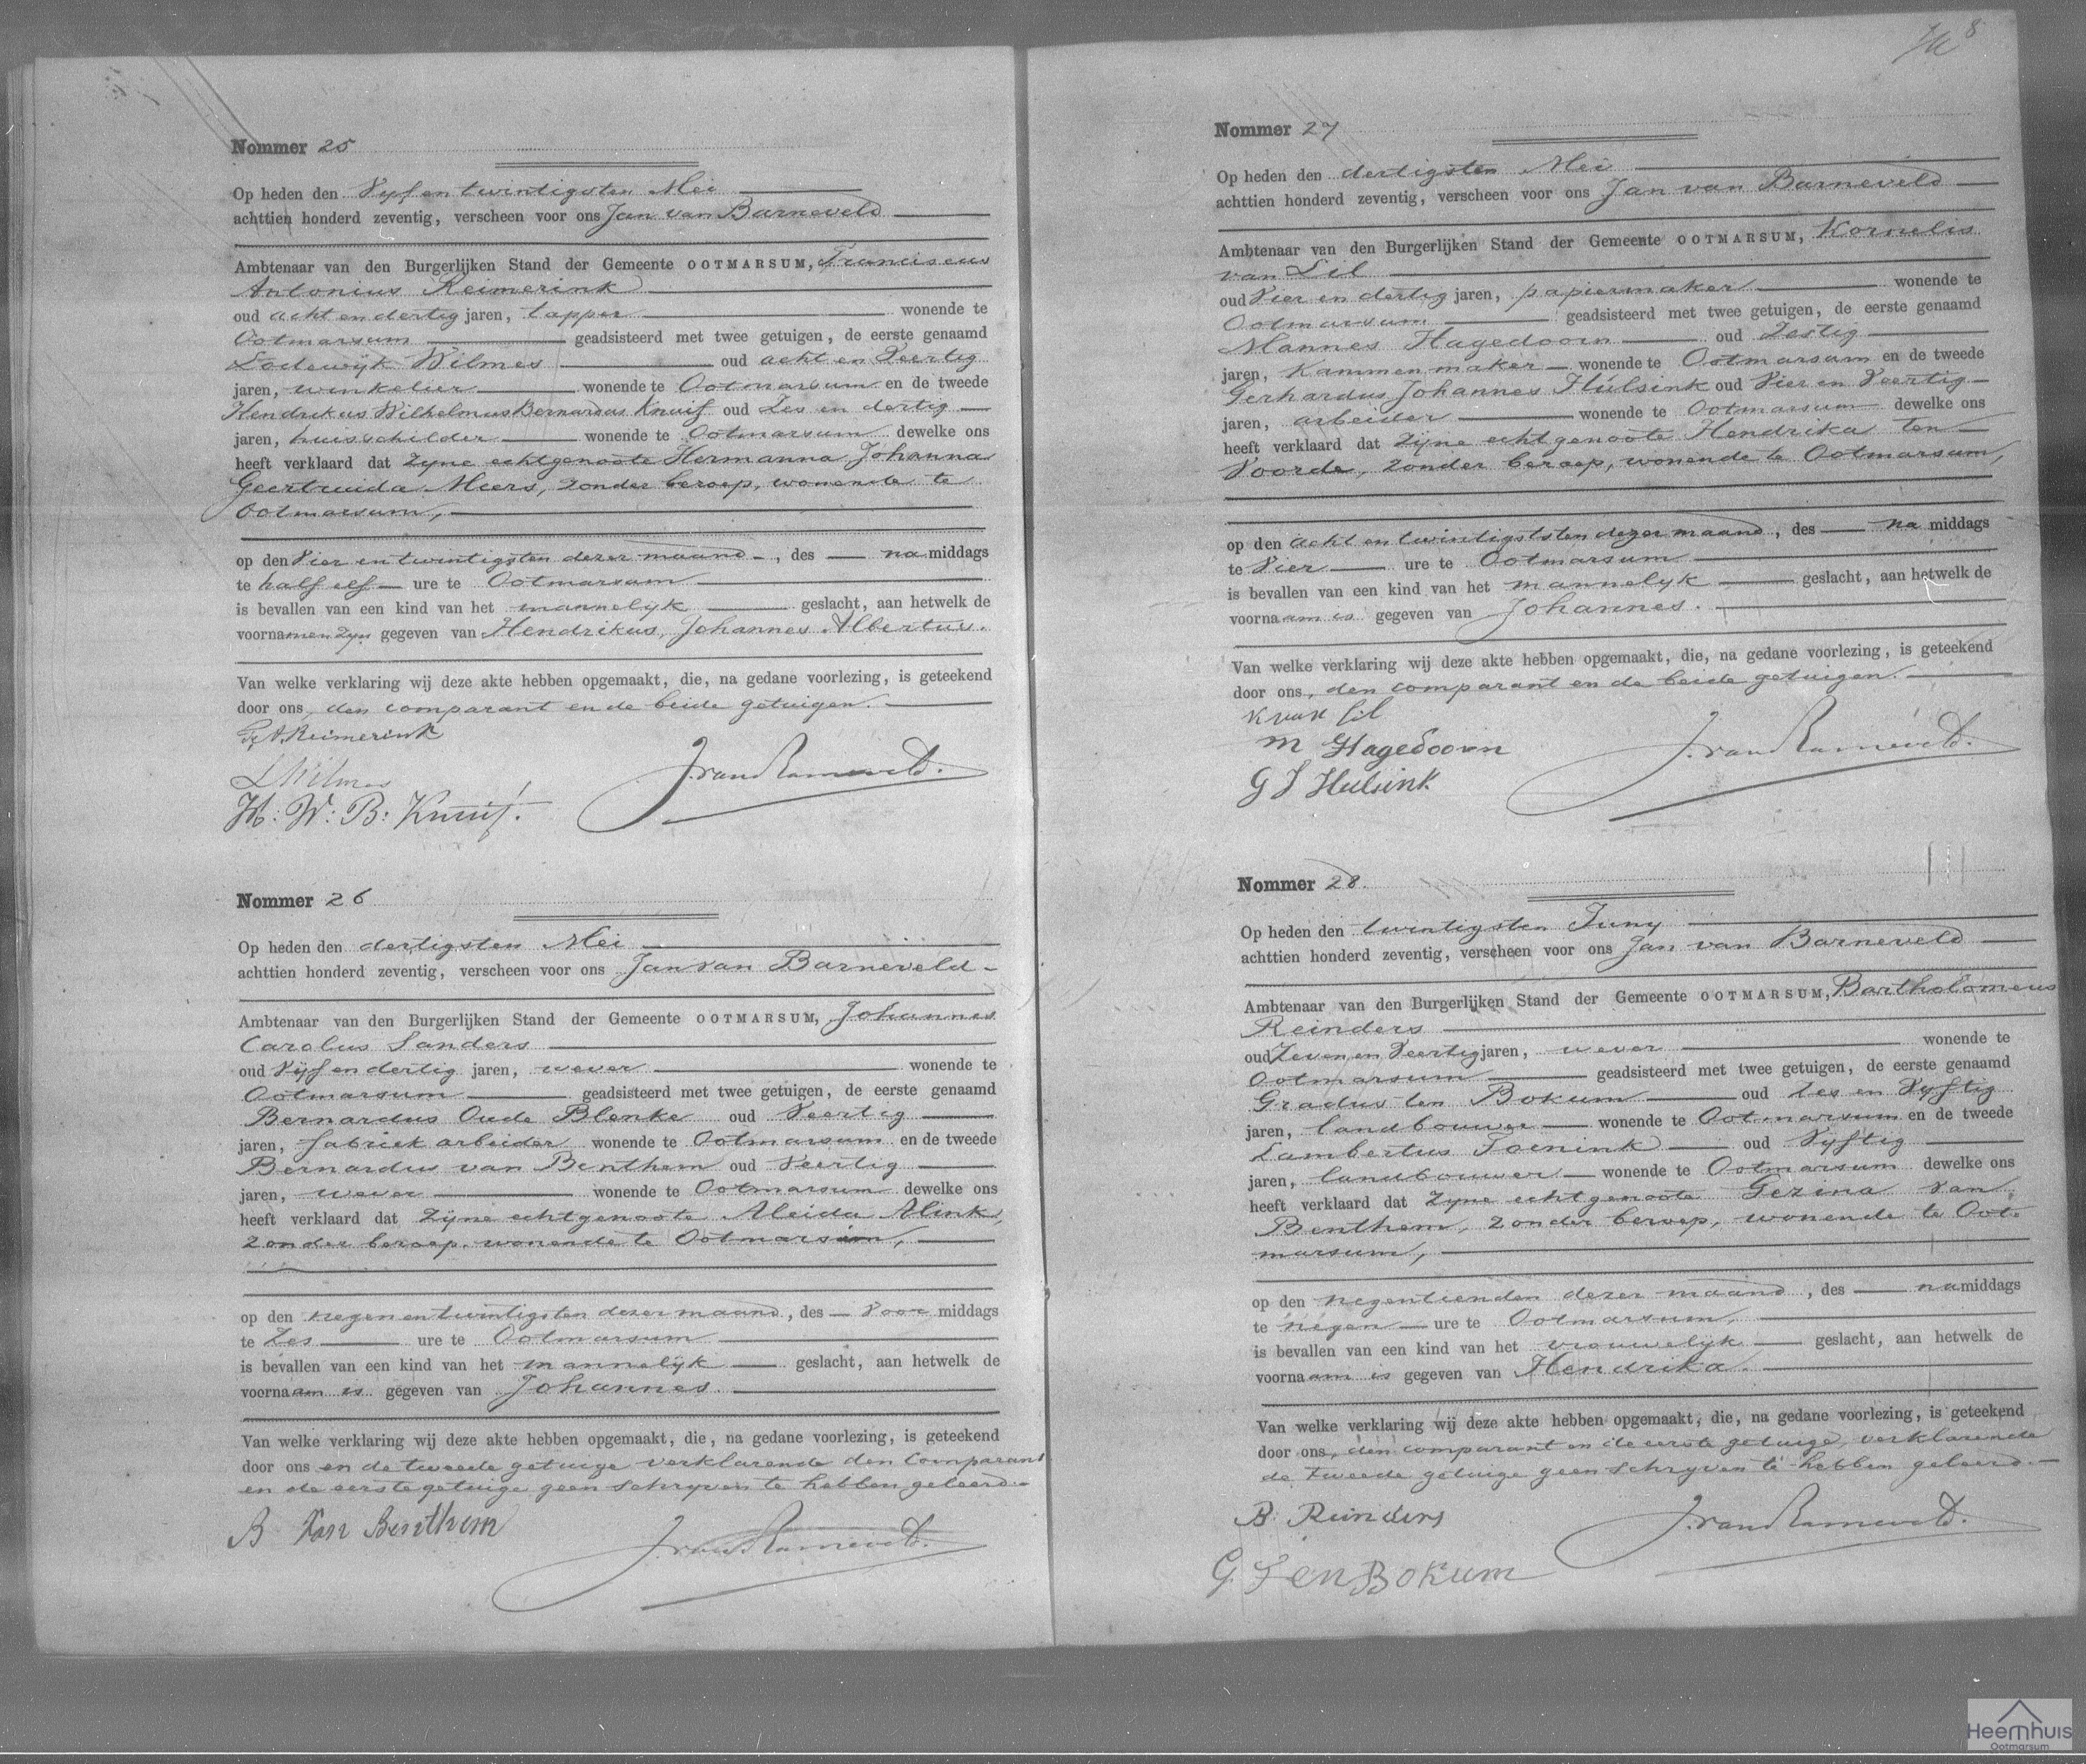 Nommer 25
Op heden den Vyf en twintigsten Mei
achttien honderd zeventig, verscheen voor ons Jan van Barneveld
Ambtenaar van den Burgerlijken Stand der Gemeente OOTMARSUM, Franciscus
Antonius Reimerink
oud acht en dertig jaren, tapper wonende te
Ootmarsum geadsisteerd met twee getuigen, de eerste genaamd
Lodewijk Wilmes oud acht en Veertig
jaren, winkelier wonende te Ootmarsum en de tweede
Hendrikus Wilhelmus Bernardus Knuif oud Zes en dertig
jaren, huisschilder wonende te Ootmarsum dewelke ons
heeft verklaard dat zyne echtgenoote Hermanna Johanna
Geertruida Meers, zonder beroep, wonende te
Ootmarsum,
op den Vier en twintigsten dezer maand, des na middags
te half elf ure te Ootmarsum
is bevallen van een kind van het mannelyk geslacht, aan hetwelk de
voornamen zyn gegeven van Hendrikus, Johannes Albertus.
Van welke verklaring wij deze akte hebben opgemaakt, die, na gedane voorlezing, is geteekend
door ons, den comparant en de beide getuigen.
F A Reimerink
L Wilmes
H: W: B: Knuif. J. van Barneveld.
Nommer 26
Op heden den dertigsten Mei
achttien honderd zeventig, verscheen voor ons Jan van Barneveld
Ambtenaar van den Burgerlijken Stand der Gemeente OOTMARSUM, Johannes
Carolus Sanders
oud Vijf en dertig jaren, wever wonende te
Ootmarsum geadsisteerd met twee getuigen, de eerste genaamd
Bernardus Oude Blenke oud Veertig
jaren, fabriek arbeider wonende te Ootmarsum en de tweede
Bernardus van Benthem oud Veertig
jaren, wever wonende te Ootmarsum dewelke ons
heeft verklaard dat zijne echtgenoote Aleida Alink,
zonder beroep, wonende te Ootmarsum,
op den negen en twintigsten dezer maand, des Voor middags
te Zes ure te Ootmarsum
is bevallen van een kind van het mannelijk geslacht, aan hetwelk de
voornaam is gegeven van Johannes.
Van welke verklaring wij deze akte hebben opgemaakt, die, na gedane voorlezing, is geteekend
door ons en de tweede getuige verklarende den Comparant
en de eerste getuige geen schryven te hebben geleerd.
B Van Benthem J. van Barneveld.
8
Nommer 27
Op heden den dertigsten Mei
achttien honderd zeventig, verscheen voor ons Jan van Barneveld
Ambtenaar van den Burgerlijken Stand der Gemeente OOTMARSUM, Kornelis
van Lil
oud Vier en dertig jaren, papiermaker wonende te
Ootmarsum geadsisteerd met twee getuigen, de eerste genaamd
Mannes Hagedoorn oud Zestig
jaren, Kammenmaker wonende te Ootmarsum en de tweede
Gerhardus Johannes Hulsink oud Vier en Veertig
jaren, arbeider wonende te Ootmarsum dewelke ons
heeft verklaard dat zyne echtgenoote Hendrika ten
Voorde, zonder beroep, wonende te Ootmarsum,
op den acht en twintigststen dezer maand, des na middags
te Vier ure te Ootmarsum
is bevallen van een kind van het mannelyk geslacht, aan hetwelk de
voornaam is gegeven van Johannes.
Van welke verklaring wij deze akte hebben opgemaakt, die, na gedane voorlezing, is geteekend
door ons, den comparant en de beide getuigen.
K van Lil
M Hagedoorn J. van Barneveld.
G J Hulsink
Nommer 28.
Op heden den twintigsten Juny
achttien honderd zeventig, verscheen voor ons Jan van Barneveld
Ambtenaar van den Burgerlijken Stand der Gemeente OOTMARSUM, Bartholomeus
Reinders
oud Zeven en Veertig jaren, wever wonende te
Ootmarsum geadsisteerd met twee getuigen, de eerste genaamd
Gradus ten Bokum oud Zes en Vyftig
jaren, landbouwer wonende te Ootmarsum en de tweede
Lambertus Toenink oud Vyftig
jaren, landbouwer wonende te Ootmarsum dewelke ons
heeft verklaard dat zyne echtgenoote Gezina van
Benthem, zonder beroep, wonende te Oot-
marsum,
op den negentienden dezer maand, des na middags
te negen ure te Ootmarsum,
is bevallen van een kind van het vrouwelijk geslacht, aan hetwelk de
voornaam is gegeven van Hendrika.
Van welke verklaring wij deze akte hebben opgemaakt, die, na gedane voorlezing, is geteekend
door ons, den comparant en de eerste getuige, verklarende
de tweede getuige geen schryven te hebben geleerd.
B. Reinders J. van Barneveld.
G. Ten Bokum
Heemhuis
Ootmarsum